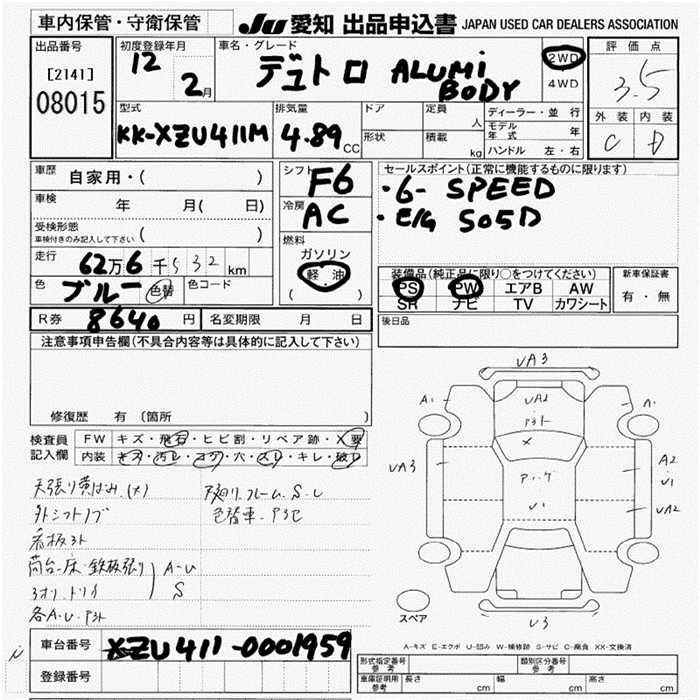 車内保管・守衛保管
JU 愛知 出品申込書 JAPAN USED CAR DEALERS ASSOCIATION
出品番号
[2141]
08015
初度登録年月
12 2月
車名・グレード
デュトロ ALUMi BODY
2WD
4WD
評価点
3.5
外装 内装
C D
型式
KK-XZU411M
排気量
4.89cc
ドア
形状
定員 人
積載 kg
ディーラー・並行
モデル年式 年
ハンドル 左・右
車歴 自家用・( )
車検 年 月( 日)
受検形態
車検付きのみ記入して下さい ( )
走行 62万6千532km
色 ブルー 色替 色コード
シフト F6
冷房 AC
燃料
ガソリン
軽油
( )
セールスポイント(正常に機能するものに限ります)
・6-SPEED
・E/G S05D
装備品(純正品に限り〇をつけてください)
PS PW エアB AW
SR ナビ TV カワシート
新車保証書
有・無
R券 8640円 名変期限 月 日
後日品
注意事項申告欄(不具合内容等は具体的に記入して下さい)
修復歴 有(箇所 )
検査員記入欄
FW キズ・飛石・ヒビ割・リペア跡・X要
内装 キズ・汚レ・コゲ・穴・スレ・キレ・破レ
天張り黄ばみ.(大)
外シフトノブ
看板跡
荷台-床・鉄板張り A-U
S
各A・U・P跡
下廻り.フレーム.S.C
色替車・P済
UA3
A1
UA2
A1
UA3
U1
A2
U1
UA2
U3
スペア
A-キズ E-エクボ U-凹み W-補修跡 S-サビ C-腐食 XX-交換済
車台番号 XZU411-0001959
登録番号
形式指定番号 参考
類別区分番号 参考
車庫証明用 参考 長さ cm 幅 cm 高さ cm